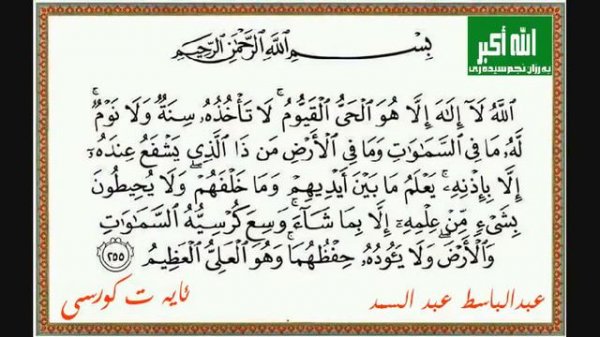 الله أكبر
به رزان نجم سیده ری
بِسْمِ اللَّهِ الرَّحْمَٰنِ الرَّحِيمِ
اللَّهُ لَآ إِلَٰهَ إِلَّا هُوَ الْحَيُّ الْقَيُّومُ ۚ لَا تَأْخُذُهُۥ سِنَةٌ وَلَا نَوْمٌ ۚ
لَّهُۥ مَا فِي السَّمَٰوَٰتِ وَمَا فِي الْأَرْضِ مَن ذَا الَّذِي يَشْفَعُ عِندَهُۥٓ
إِلَّا بِإِذْنِهِۦ ۚ يَعْلَمُ مَا بَيْنَ أَيْدِيهِمْ وَمَا خَلْفَهُمْ ۖ وَلَا يُحِيطُونَ
بِشَيْءٍ مِّنْ عِلْمِهِۦٓ إِلَّا بِمَا شَآءَ ۚ وَسِعَ كُرْسِيُّهُ السَّمَٰوَٰتِ
وَالْأَرْضَ ۖ وَلَا يَـُٔودُهُۥ حِفْظُهُمَا ۚ وَهُوَ الْعَلِيُّ الْعَظِيمُ ٢٥٥
عبدالباسط عبد السد
ئایه ت کورسی